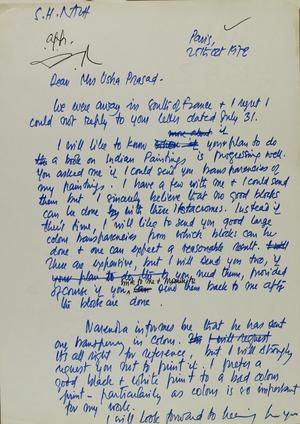 S.H. RAZA
Paris,
25th Oct 1978
Dear Mrs Usha Prasad -
We were away in South of France & I regret I
could not reply to your letter dated July 31.
more about it
I will like to know if your plan to
do a book on Indian Paintings is progressing well.
You asked me if I could send you transparencies of
my paintings. I have a few with me & I could send
them but I sincerely believe that no good blocks
can be done by with these
their time, I will like to send you good large
colour transparencies from which blocks can be
done & one can expect a reasonable result.
These are expensive, but I will send you two, if
you need them, provided
of course if you send them back to me after
the blocks are done.
Narendra informs me that he has sent
one transparency in colour.
It's all right for reference, but I will strongly
request you not to print it. I prefer a
good black & white print to a bad colour
print - particularly as colour is so important
for my work.
I will look forward to hearing from you